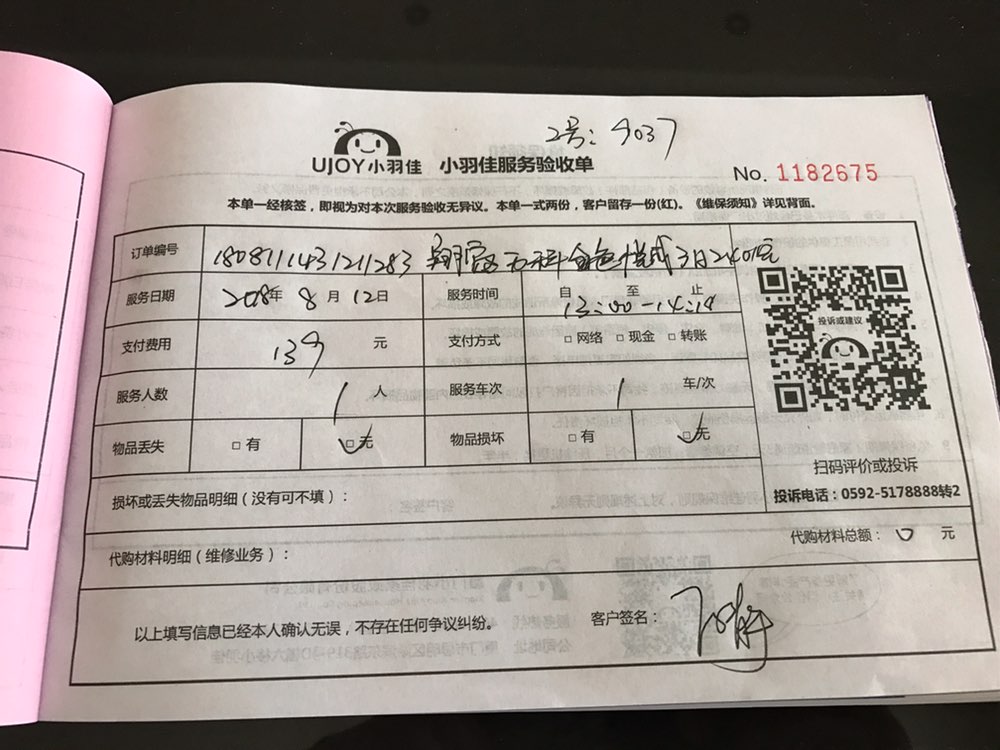 2号：9037
UJOY小羽佳 小羽佳服务验收单
No. 1182675
本单一经核签，即视为对本次服务验收无异议。本单一式两份，客户留存一份(红)。《维保须知》详见背面。
订单编号
服务日期 2018年 8月 12日 服务时间 自 至 止 13:00-14:19
支付费用 139 元 支付方式 □网络 □现金 □转账
投诉或建议
服务人数 1 人 服务车次 1 车/次
物品丢失 □有 □无 物品损坏 □有 □无
扫码评价或投诉
投诉电话：0592-5178888转2
损坏或丢失物品明细（没有可不填）：
代购材料明细（维修业务）： 代购材料总额：0 元
以上填写信息已经本人确认无误，不存在任何争议纠纷。 客户签名：